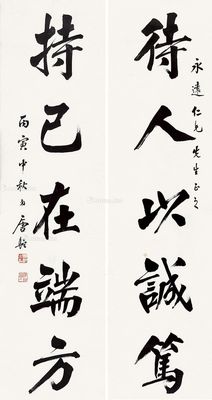 永遠仁兄先生正之
待人以誠篤
持己在端方
丙寅中秋唐駝